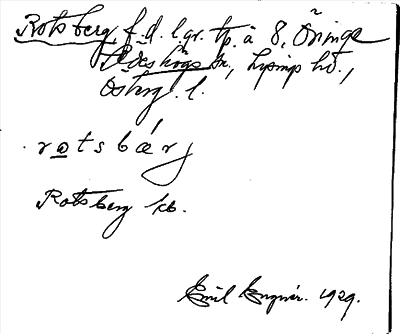 Rotsberg, f.d. lgr. tp. å 8, Öninge
Ödeshögs sn, Lysings hd.,
Östergl. l.
rotsbærj
Rotsberg kb.
Emil 1929.